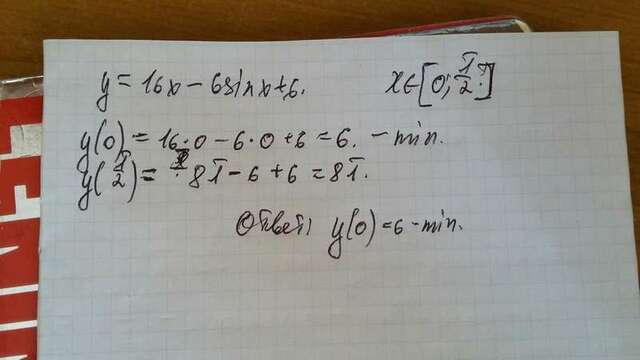 y = 16x - 6sinx + 6. x ∈ [0; π/2]
y(0) = 16·0 - 6·0 + 6 = 6. - min.
y(π/2) = 8π - 6 + 6 = 8π.
Ответ: y(0) = 6 - min.